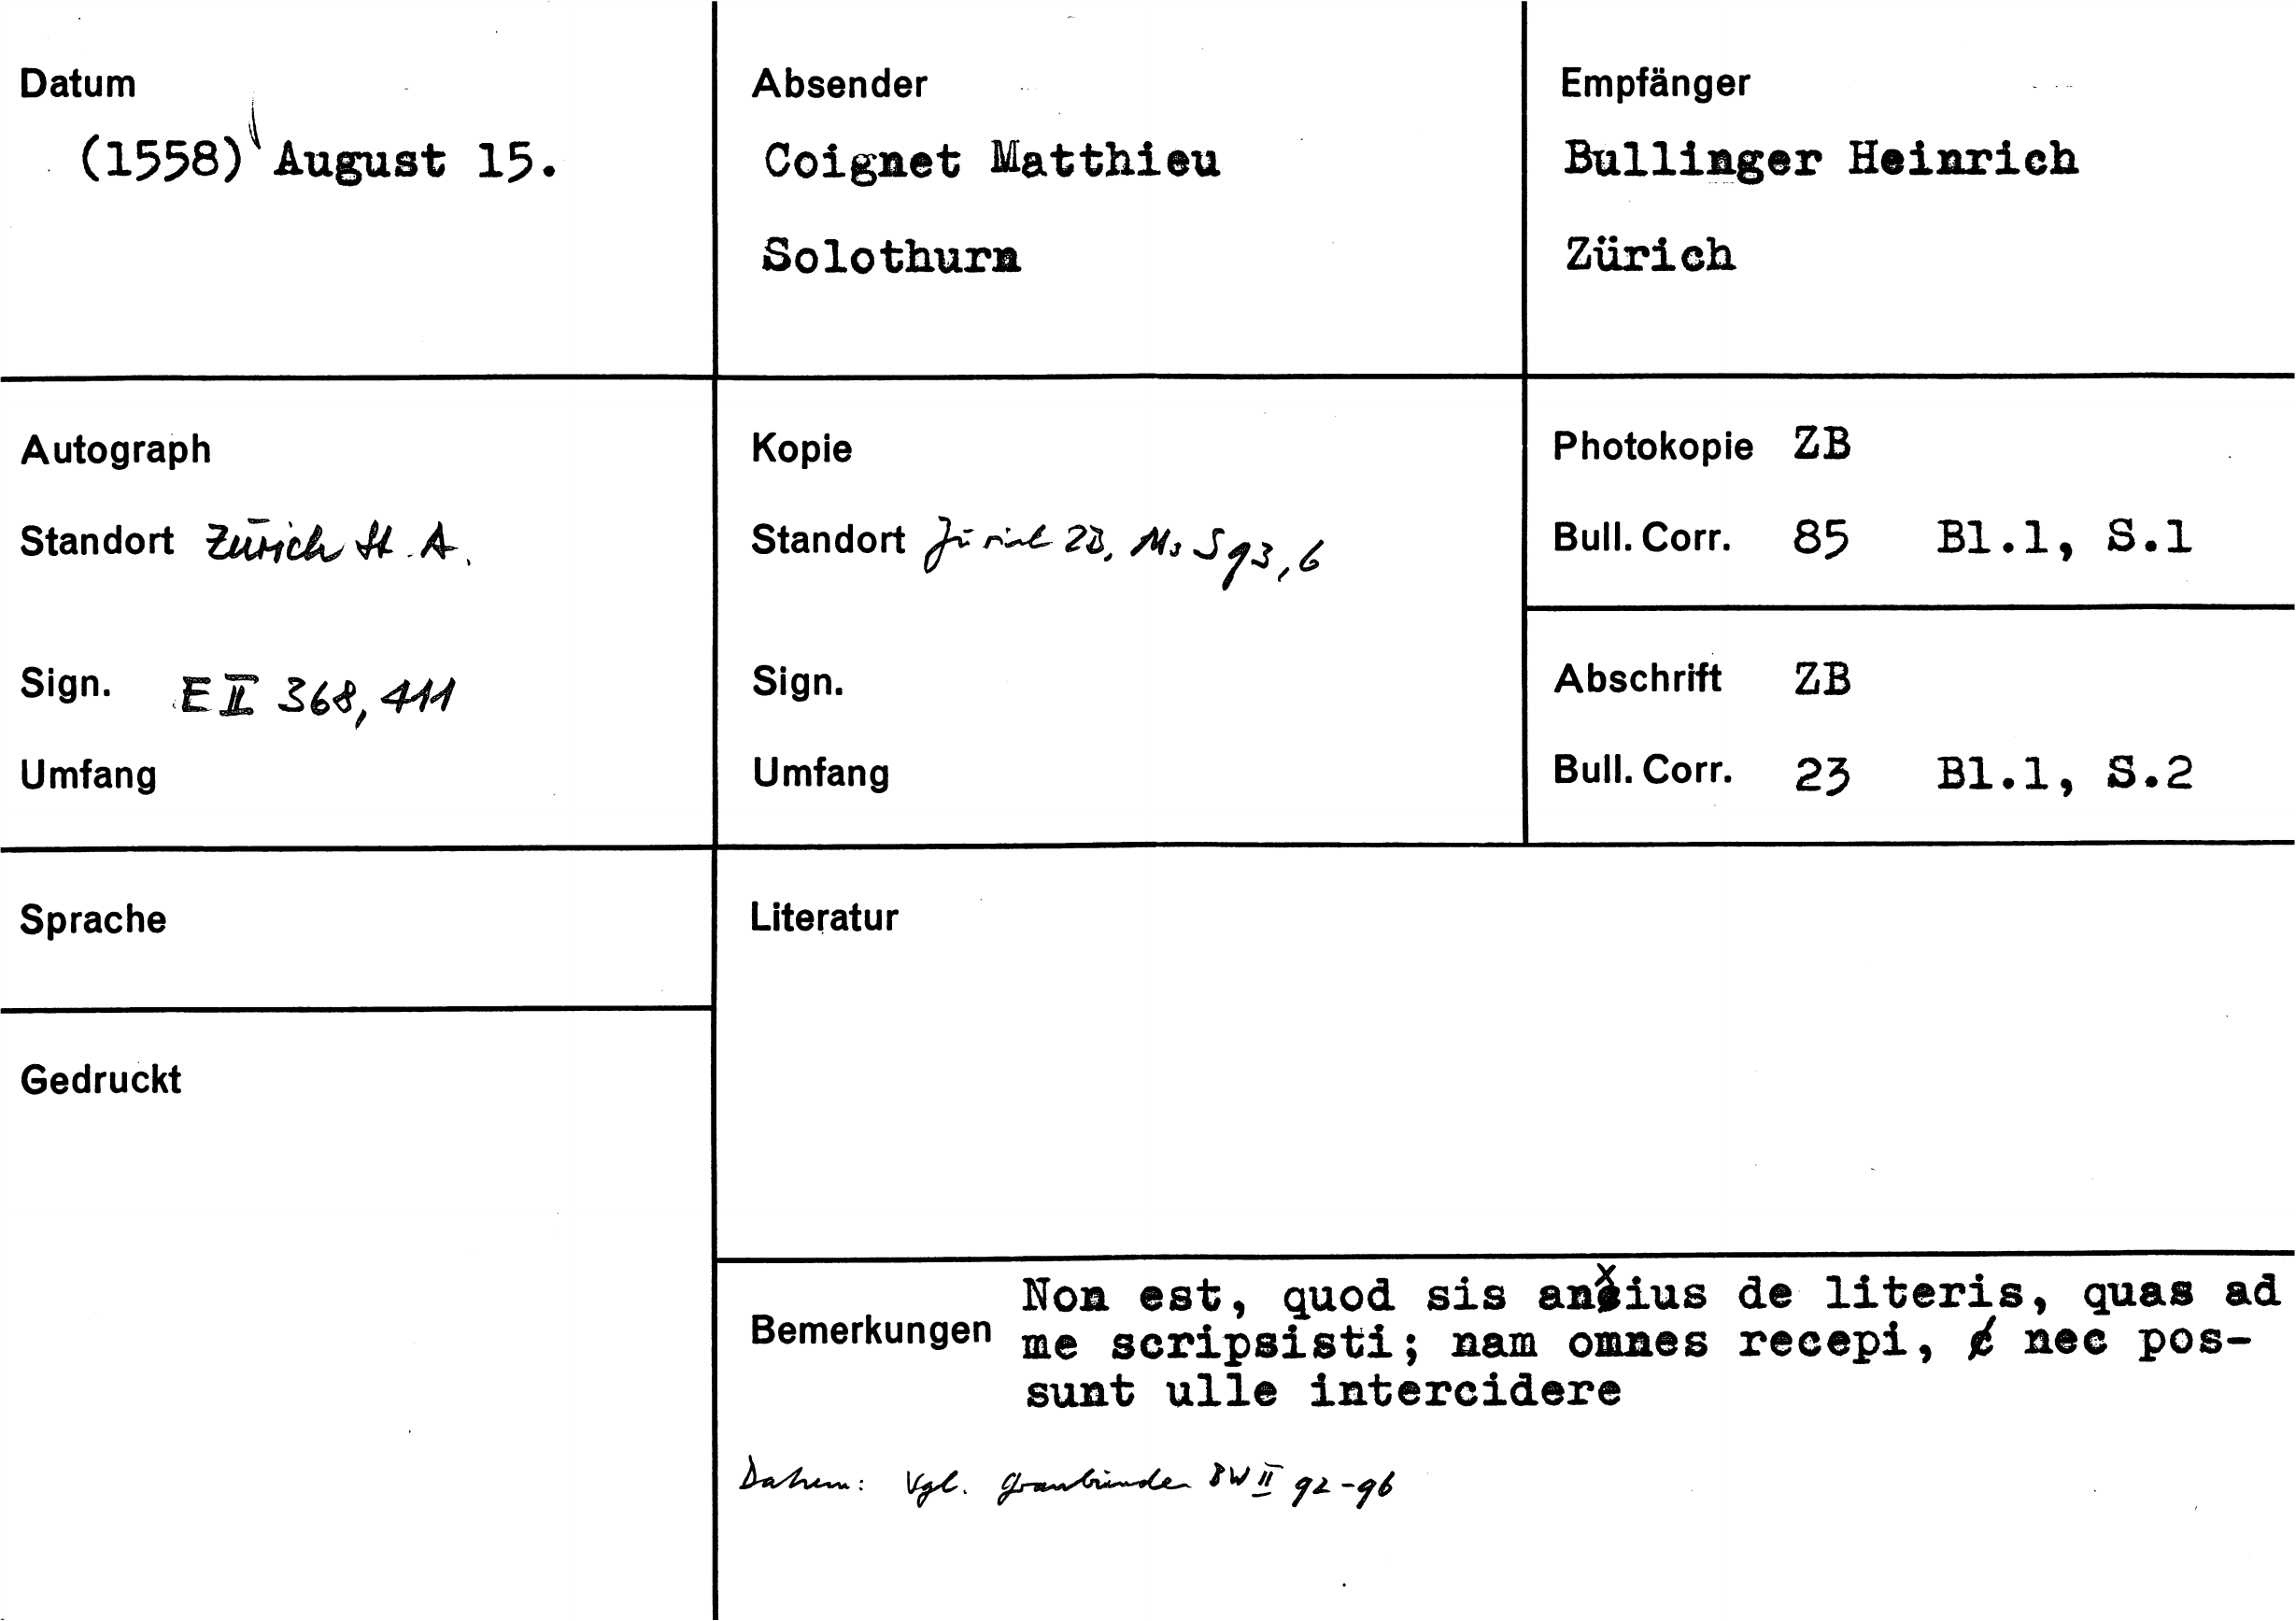 Datum
(1558) August 15.
Absender
Coignet Matthieu
Solothurn
Empfänger
Bullinger Heinrich
Zürich
Autograph
Standort Zürich St. A.
Sign. E II 368, 411
Umfang
Kopie
Standort Zürich ZB, Ms S 93, 6
Sign.
Umfang
Photokopie ZB
Bull. Corr. 85 Bl.1, S.1
Abschrift ZB
Bull. Corr. 23 Bl.1, S.2
Sprache
Gedruckt
Literatur
Bemerkungen
Non est, quod sis anxius de literis, quas ad
me scripsisti; nam omnes recepi, nec pos-
sunt ulle intercidere
Datum: Vgl. Graubünden BW II 92-96